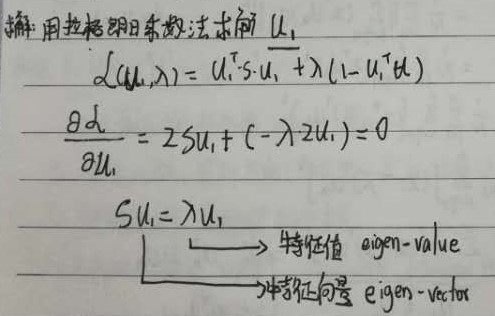 解: 用拉格朗日乘数法求解 u₁
L(u₁,λ) = u₁ᵀ·S·u₁ + λ(1-u₁ᵀu)
∂L/∂u₁ = 2Su₁ + (-λ·2u₁) = 0
Su₁ = λu₁
特征值 eigen-value
特征向量 eigen-vector